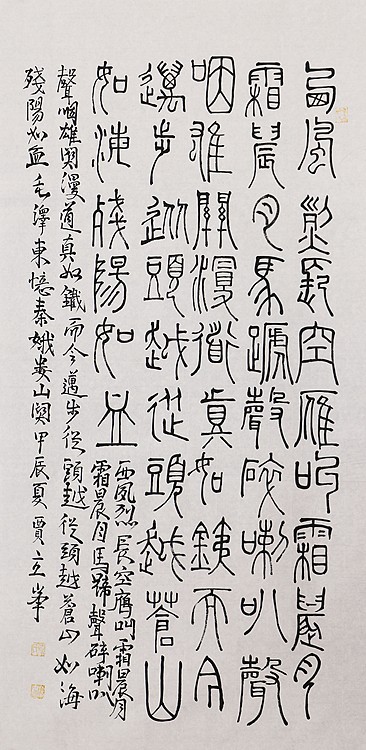 西風烈長空雁叫霜晨月
霜晨月馬蹄聲碎喇叭聲
咽雄關漫道真如鐵而今
邁步從頭越從頭越蒼山
如海殘陽如血
西風烈長空鷹叫霜晨月
霜晨月馬蹄聲碎喇叭
聲咽雄關漫道真如鐵而今邁步從頭越從頭越蒼山如海
殘陽如血毛澤東憶秦娥婁山關甲辰夏賈立峯